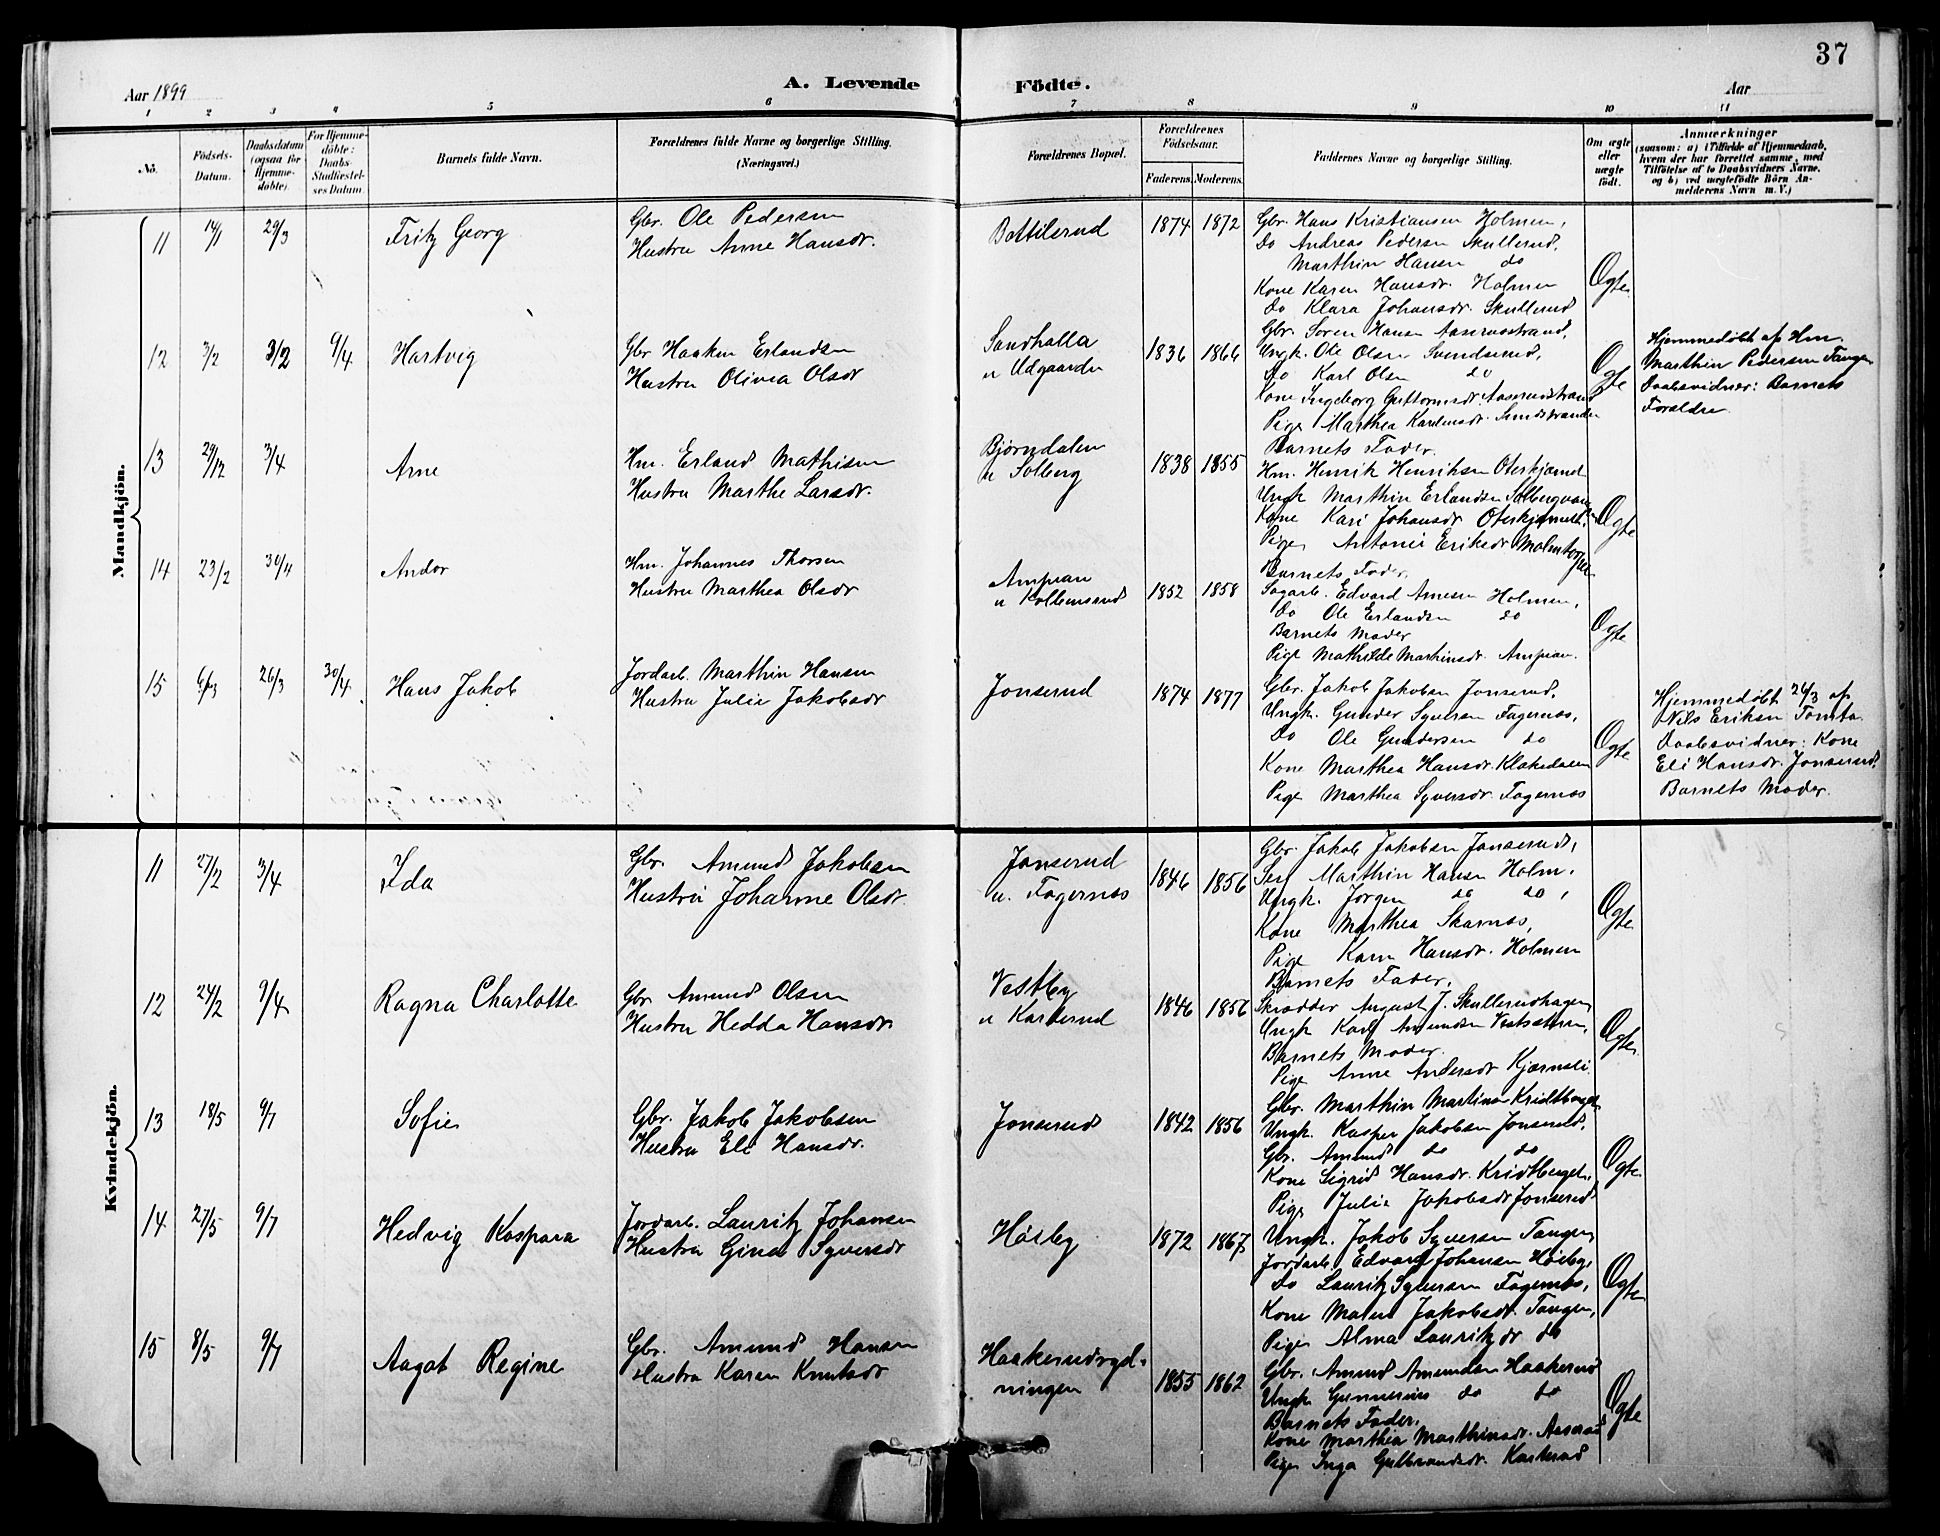 37
Aar 1899 A. Levende Födte. Aar
1 2 3 4 5 6 7 8 9 10 11
No. Födsels-Datum. Daabsdatum (ogsaa for Hjemme-döbte). For Hjemme-döbte: Daabs-Stadfæstel-ses Datum. Barnets fulde Navn. Forældrenes fulde Navne og borgerlige Stilling. (Næringsvei.) Forældrenes Bopæl. Forældrenes Födselsaar. Faderens. Moderens. Faddernes Navne og borgerlige Stilling. Om ægte eller uægte födt. Anmærkninger (saasom: a) i Tilfælde af Hjemmedaab, hvem der har forrettet samme, med Tilföielse af to Daabsvidners Navne, og b) ved uægtefödte Börn An-melderens Navn m. V.)
Mandkjön.
11 14/1 29/3 Fritz Georg Gbr. Ole Pedersen Bottilsrud 1874 1872 Gbr. Hans Kristiansen Holmen,
Hustru Anne Hansdr. Do Andreas Pedersen Skullerud,
Marthin Hansen do
Kone Karen Hansdr. Holmen Ægte
Do Klara Johansdr. Skullerud
12 3/2 3/2 9/4 Hartvig Gbr Haaken Erlandsen Sandhalla 1836 1866 Gbr. Soren Hansen Aaserudstrand, Hjemmedøbt af Hm.
Hustru Olivia Olsdr u Udgaarden Ungk. Ole Olsen Svendsrud, Ægte Marthin Pedersen Tangen
Do Karl Olsen do Daabsvidner: Barnets
Kone Ingeborg Guttormsdr. Aaserudstrand Forældre.
Pige Marthea Karlensdr. Sundstranden
13 29/12 3/4 Arne Hm. Erland Mathisen Bjørndalen 1838 1855 Barnets Fader.
Hustru Marthe Larsdr. u Solberg Hm. Henrik Henriksen Oterkjærnet
Ungk Marthin Erlandsen
Kone Kari Johansdr Oterkjærnet, Ægte
Pige Antonie Eriksdr
14 23/2 30/4 Andor Hm. Johannes Thorsen Ampian 1852 1858 Barnets Fader,
Hustru Marthea Olsdr u Kolbensrud Sagarb. Edvard Arnesen Holmen,
Do Ole Erlandsen do Ægte
Barnets Moder
Pige Mathilde Marthinsdr. Ampian.
15 6/3 26/3 30/4 Hans Jakob Jordarb. Marthin Hansen Jonserud 1874 1877 Gbr. Jakob Jakobsen Jonserud, Hjemmedøbt 26/3 af
Hustru Julie Jakobsdr Ungk. Gunder Syversen Fagernæs, Nils Eriksen Tomta.
Do Ole Gundersen do Ægte Daabsvidner: Kone
Kone Marthea Hansdr. Klokedalen Eli Hansdr. Jonserud,
Pige Marthea Syversdr Fagernæs Barnets Moder.
Kvindekjön.
11 27/2 3/4 Ida Gbr. Amund Jakobsen Jonserud 1846 1856 Gbr. Jakob Jakobsen Jonserud,
Hustru Johanne Olsdr. u. Fagernæs Marthin Hansen Holm,
Ungk. Jørgen do do, Ægte
Kone Marthea Skarnæs,
Pige Karn Hansdr. Holmen
12 24/2 9/4 Ragna Charlotte Gbr. Amund Olsen Vestby 1846 1856 Barnets Fader,
Hustru Hedda Hansdr u Karterud Skrædder August J. Skullerudhagen,
Ungk Karl Amundsen Ægte
Barnets Moder.
Pige Anne Andersdr Kjærnsli
13 18/5 9/7 Sofie Gbr. Jakob Jakobsen Jonserud 1842 1856 Gbr. Marthin Martinsen
Hustru Eli Hansdr. Ungk. Kasper Jakobsen Jonserud,
Gbr. Amund do do Ægte
Kone Sigrid Hansdr.
Pige Julie Jakobsdr Jonserud
14 27/5 9/7 Hedvig Kaspara Jordarb. Lauritz Johansen Høiby 1872 1867 Ungk. Jakob Syversen Tangen,
Hustru Gina Syversdr Jordarb. Edvard Johansen Høiby,
Do Lauritz Syversen Fagernæs, Ægte
Kone Jakobsdr. Tangen,
Pige Alma Lauritzdr do
15 8/5 9/7 Aagot Regine Gbr. Amund Hansen Haakerudryd- 1855 1862 Gbr. Amund Amundsen Haakerud
Hustru Karen Knutsdr ningen Ungk Gunnerius do do
Barnets Fader, Ægte
Kone Marthea Marthinsdr. Aaserud
Pige Inga Gulbrandsdr. Karterud